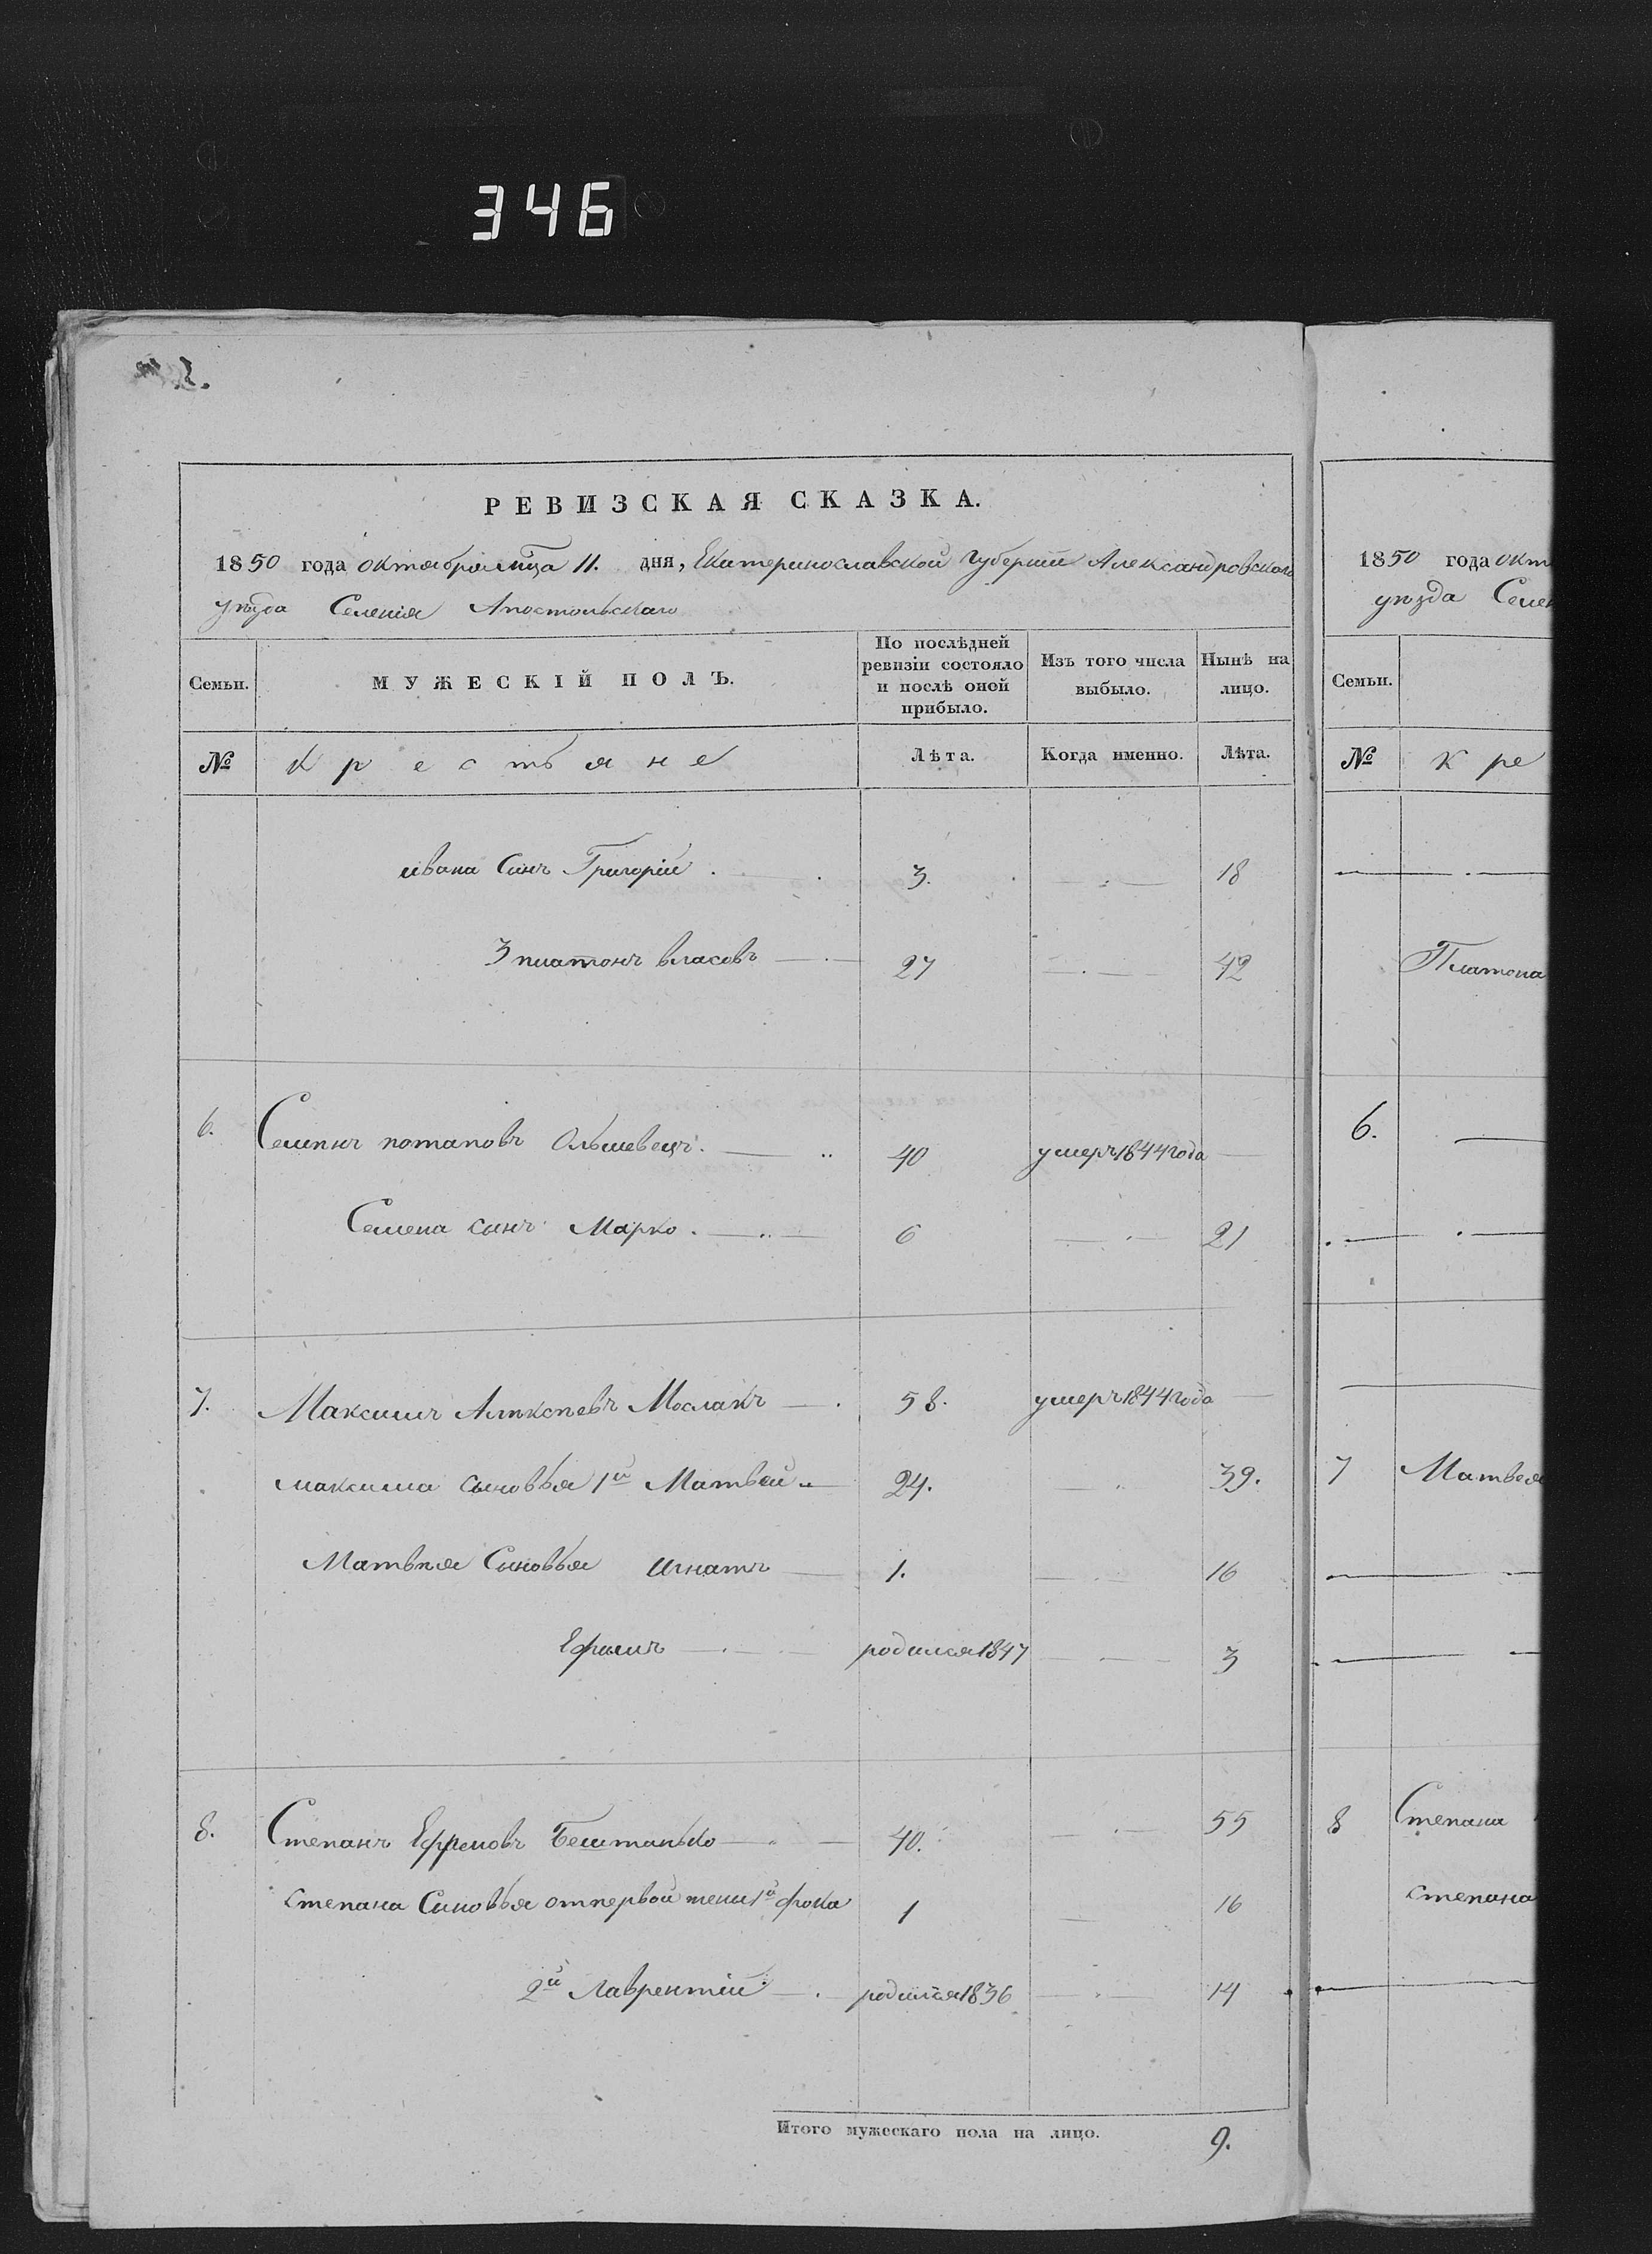 346
РЕВИЗСКАЯ СКАЗКА.
1850 года октября мца 11. дня, Екатеринославской губернии Александровскаго
уѣзда Селенія Апостольскаго
Семьи.
МУЖЕСКІЙ ПОЛЪ.
По послѣдней ревизіи состояло и послѣ оной прибыло.
Изъ того числа выбыло.
Нынѣ на лицо.
№ Крестьяне Лѣта. Когда именно. Лѣта.
ивана Синъ Григорій . 3. 18
3 платонъ власовъ 27 42
6. Семѣнъ потаповъ Ольшевецъ. 40 умеръ 1844 года
Семена сынъ Марко. 6 21
7. Максимъ Алѣксѣевъ Мослакъ 58. умеръ 1844 года
максима сыновья 1й Матвей 24. 39.
Матвѣя Сыновья Игнатъ 1. 16
Ефимъ родился 1847 3
8. Степанъ Ефремовъ Бештанько 40. 55
степана Сыновья от первой жены 1й фока 1 16
2й Лаврентій родился 1836 14
Итого мужескаго пола на лицо. 9.
1850 года окт
уѣзда Селен
Семьи.
№ К ре
Платона
6.
7 Матвея
8 Степана
степана